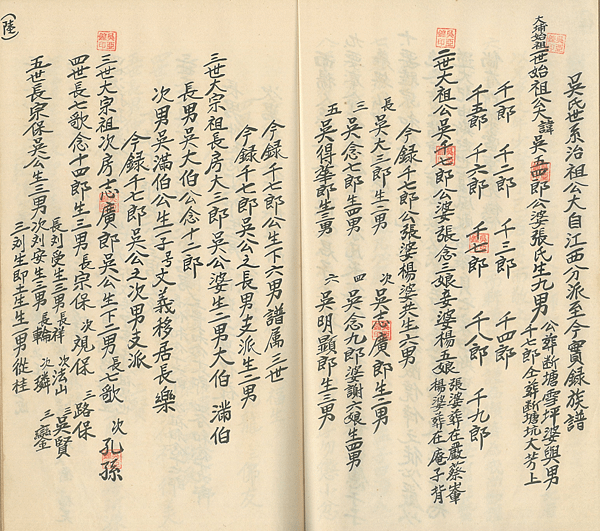 吳氏世系治祖公大自江西分派至今實錄族譜
大埔始祖
一世始祖公大諱吳五四郎公婆張氏生九男
公葬断塘雪坪婆與男
千七郎仝葬断塘坑大芳上
千一郎 千二郎 千三郎 千四郎
千五郎 千六郎 千七郎 千八郎 千九郎
二世大祖公吳千七郎公婆張念三娘妾婆楊五娘
張婆葬在嚴蔡峯
楊婆葬在庵子背
今録千七郎公張婆楊婆共生六男
長 吳大三郎生二男 次 吳志廣郎生二男
三 吳念七郎生四男 四 吳念九郎婆謝六娘生四男
五 吳得華郎生三男 六 吳明顯郎生三男
今録千七郎公生下六男譜属三世
今録千七郎吳公之長男支派生二男
三世大宗祖長房大三郎吳公婆生二男大伯 滿伯
長男吳大伯公念十二郎
次男吳滿伯公生一子号文義移居長樂
今録千七郎吳公之次男支派
三世大宗祖次房志廣郎吳公生下二男長七歌 次孔孫
四世長七歌念十四郎生三男長宗保 次观保 三路保
五世長宗保吳公生三男
長刘受生三男長祥 次法山 三吳賢
次刘安生三男長輪 次獜 三鑾
三刘生即土產生一男從桂
(陸)